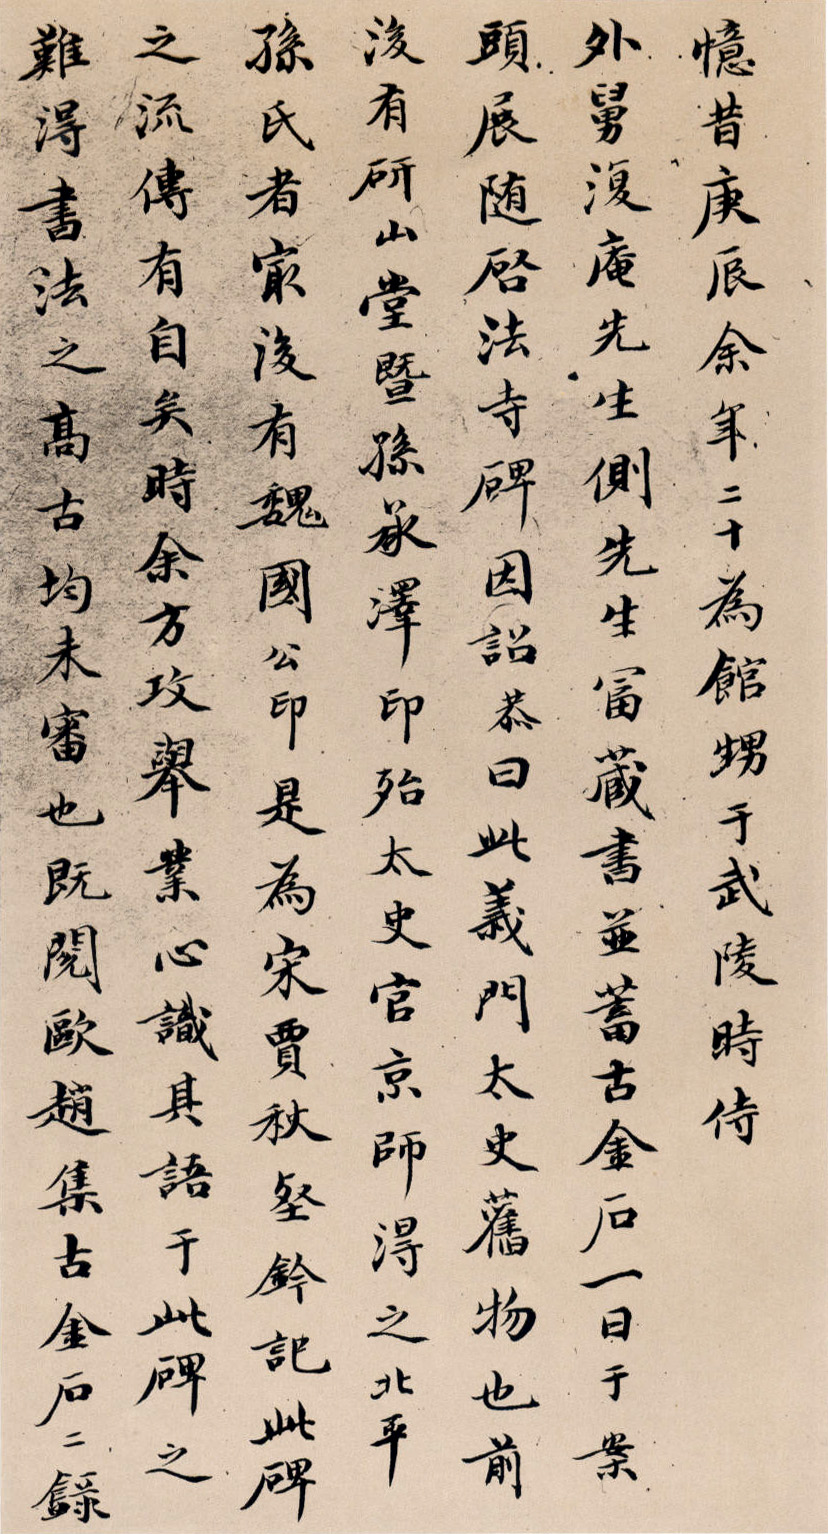 憶昔庚辰余年二十為館甥于武陵時侍
外舅復庵先生側先生富藏書並蓄古金石一日于案
頭展随啓法寺碑因詔恭曰此義門太史舊物也前
後有研山堂暨孫承澤印殆太史官京師得之北平
孫氏者㝡後有魏國公印是為宋賈秋壑鈐記此碑
之流傳有自矣時余方攻舉業心識其語于此碑之
難得書法之高古均未審也既閱歐趙集古金石二錄